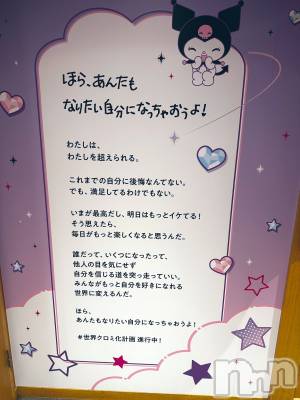 ほら、あんたも
なりたい自分になっちゃおうよ!
わたしは、
わたしを超えられる。
これまでの自分に後悔なんてない。
でも、満足してるわけでもない。
いまが最高だし、明日はもっとイケてる!
そう思えたら、
毎日がもっと楽しくなると思うんだ。
誰だって、いくつになったって、
他人の目を気にせず
自分を信じる道を突っ走っていい。
みんながもっと自分を好きになれる
世界に変えるんだ。
ほら、
あんたもなりたい自分になっちゃおうよ!
#世界クロミ化計画 進行中!